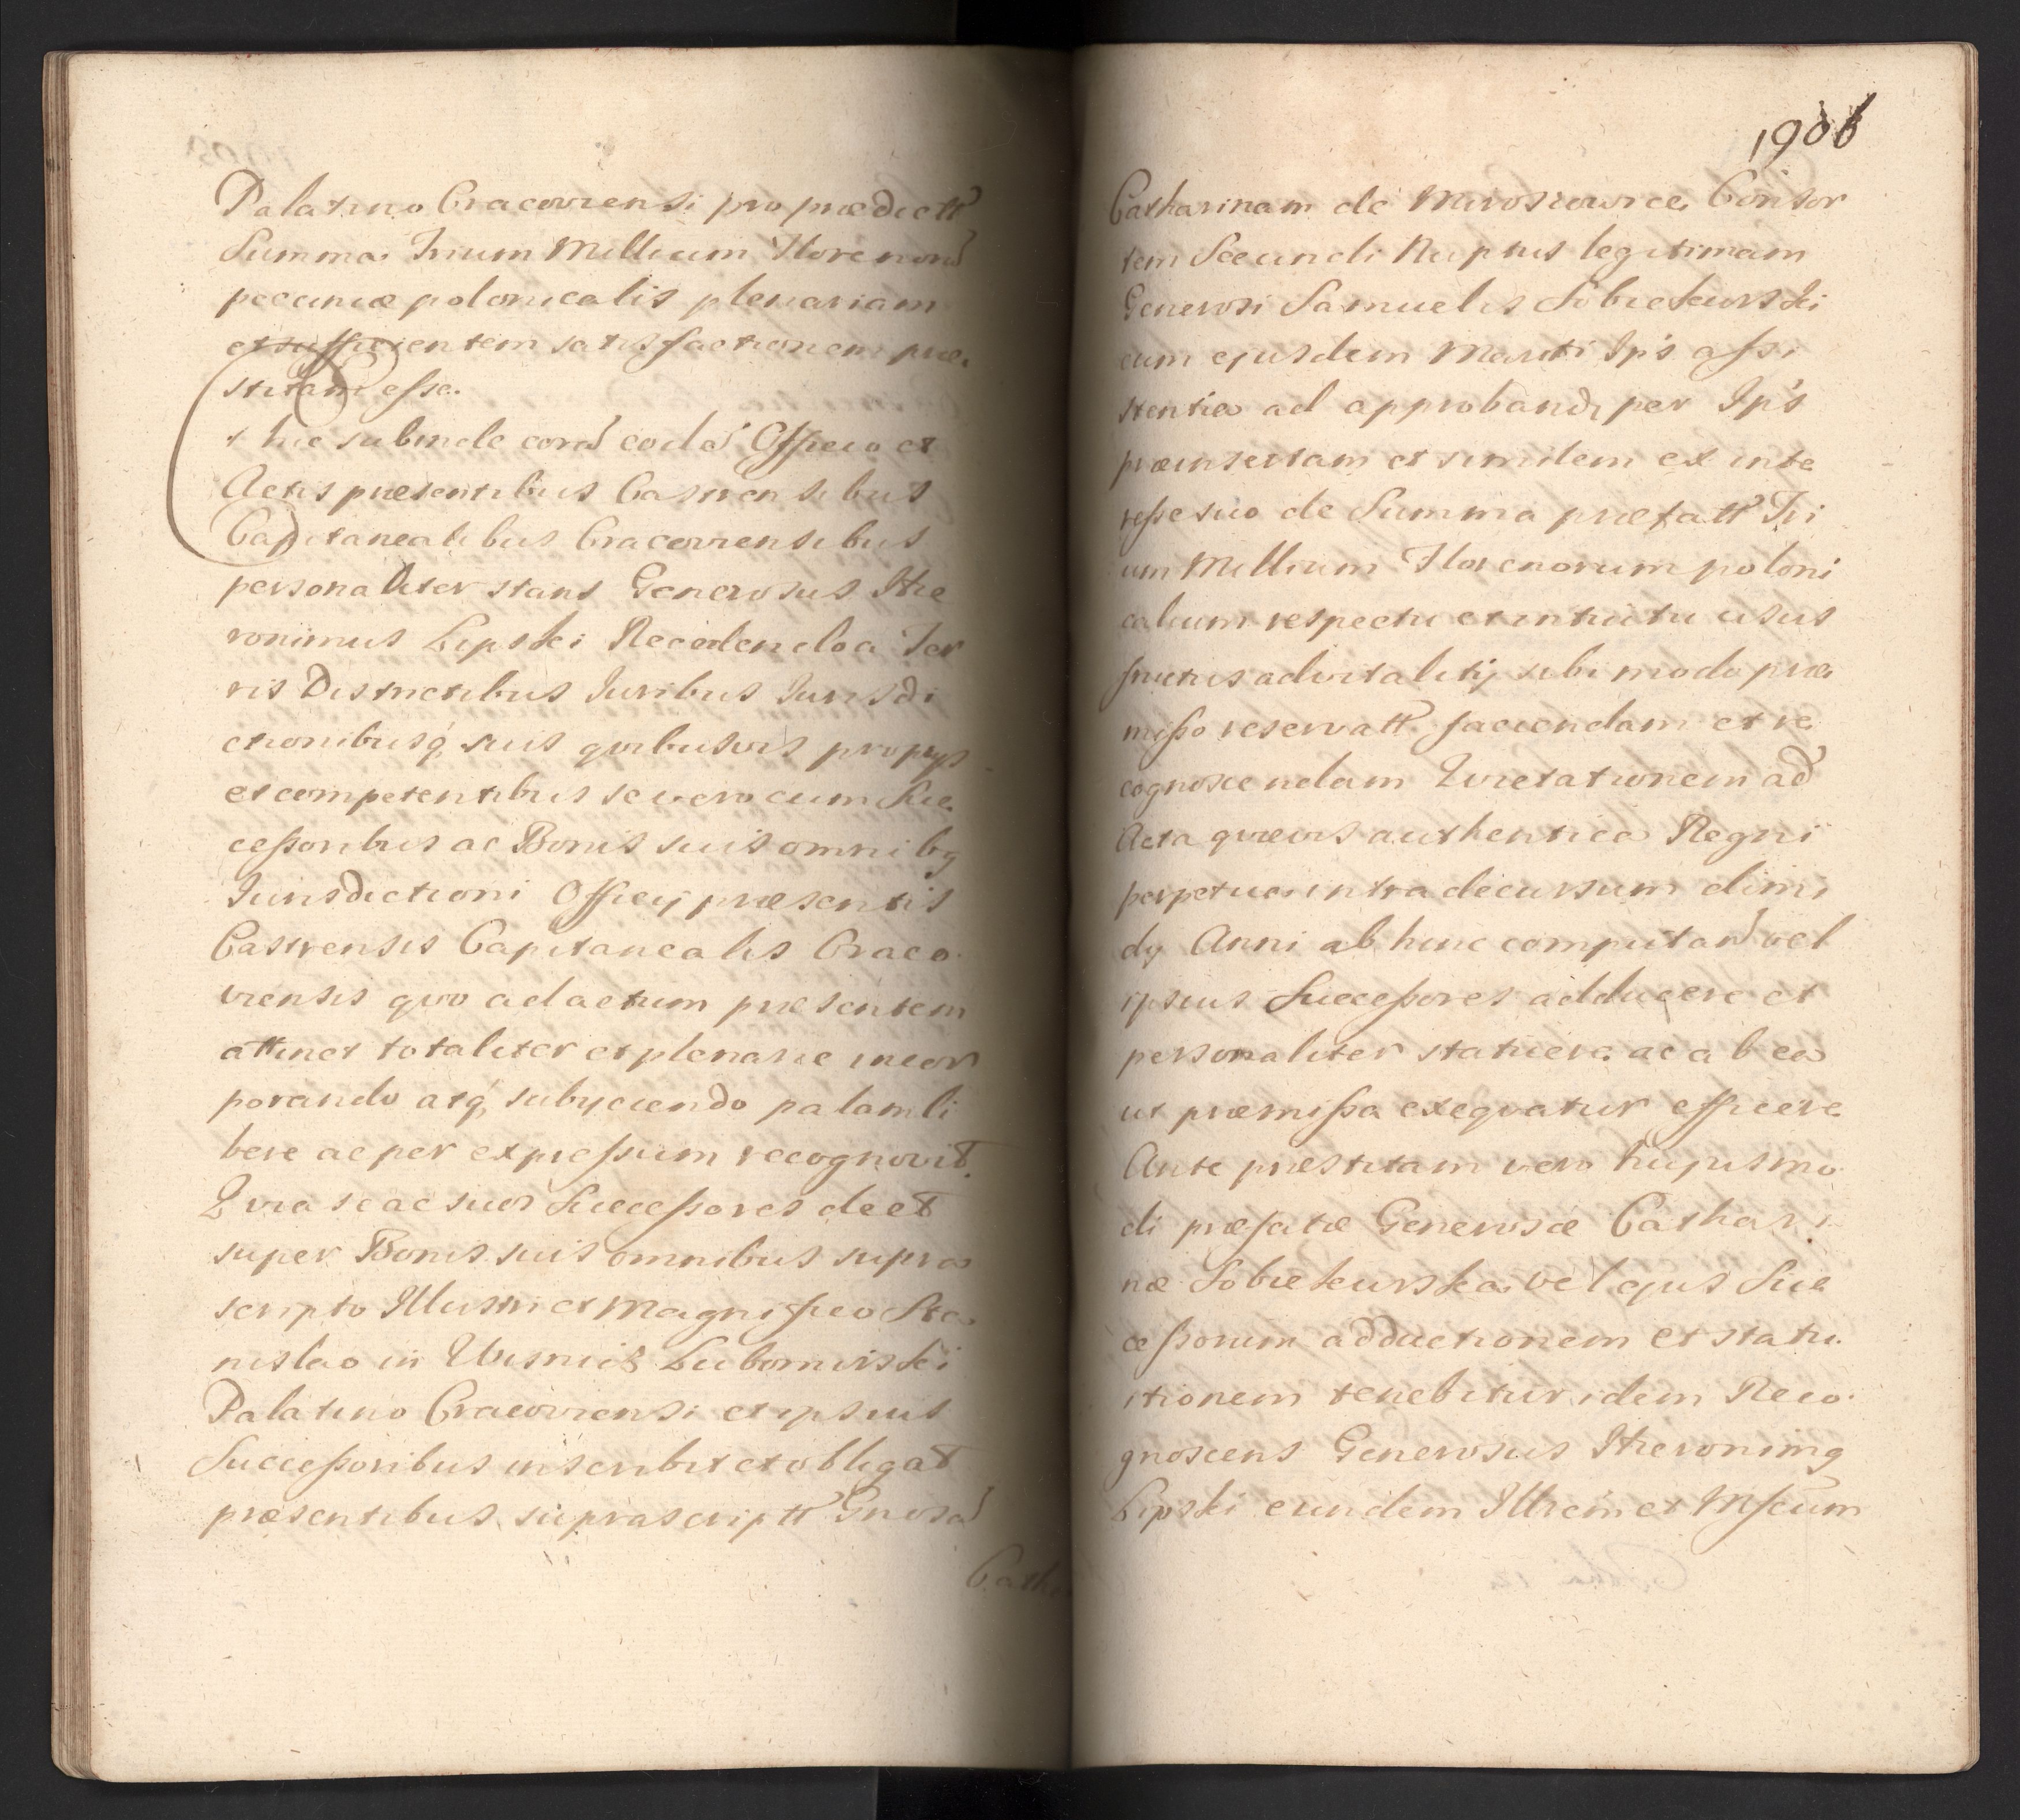 Palatino Cracoviensi pro prædictt
Summa Trium Millium Florenorũ
pecuniæ polonicalis plenariam
et sufficientem satisfactionem præ
stitam esse.
Et hic subinde corã eodẽ Officio et
Actis præsentibus Castrensibus
Capitanealibus Cracoviensibus
personaliter stans Generosus Hie
ronimus Lipski Recedendo a Ter
ris Districtibus Juribus Jurisdi
ctionibusq́ suis qvibusvis proprys
et competentibus se vero cum Suc
ceſsoribus ac Bonis suis omnibq
Jurisdictioni Officÿ præsentis
Castrensis Capitanealis Craco
viensis qvo ad actum præsentem
attinet totaliter et plenarie incor
porando atq́ subyciendo palam li
bere ac per expreſsum recognovit.
Qvia se ac suos Succeſsores de et
super Bonis suis omnibus supra
scripto Illustri et Magnifico Sta
nislao in Wisnicz Lubomirski
Palatino Cracoviensi et ipsius
Succeſsoribus inscribit et obligat
præsentibus suprascriptt Gnosã
Catha
1906
Catharinam de Mirosiowice Consor
tem Secundi Nuptus legitimam
Generosi Samuelis Sobiekurski
cum ejusdem Mariti Ip's aſsi
stentia ad approband, per Ip's
præinsertam et similem ex inte
reſse suo de Summa præfatt Tri
um Millium Florenorum poloni
calium respectu et intuitu usus
fructus advitalitÿ sibi modo præ
miſso reservatt faciendam et re
cognoscendam Qvietationem ad
Acta qvævis authentica Regni
perpetua intra decursum dimi
dÿ Anni ab hinc computand vel
ipsius Succeſsores adducere et
personaliter statuere ac ab ea
ut præmiſsa exeqvatur efficere
Ante præstitam vero hujusmo
di præfatæ Generosæ Cathari
næ Sobiekurska vel ejus Suc
ceſsorum adductionem et statu
itionem tenebitur idem Reco
gnoscens Generosus Hieronimq
Lipski eundem Illrem et Mfcum